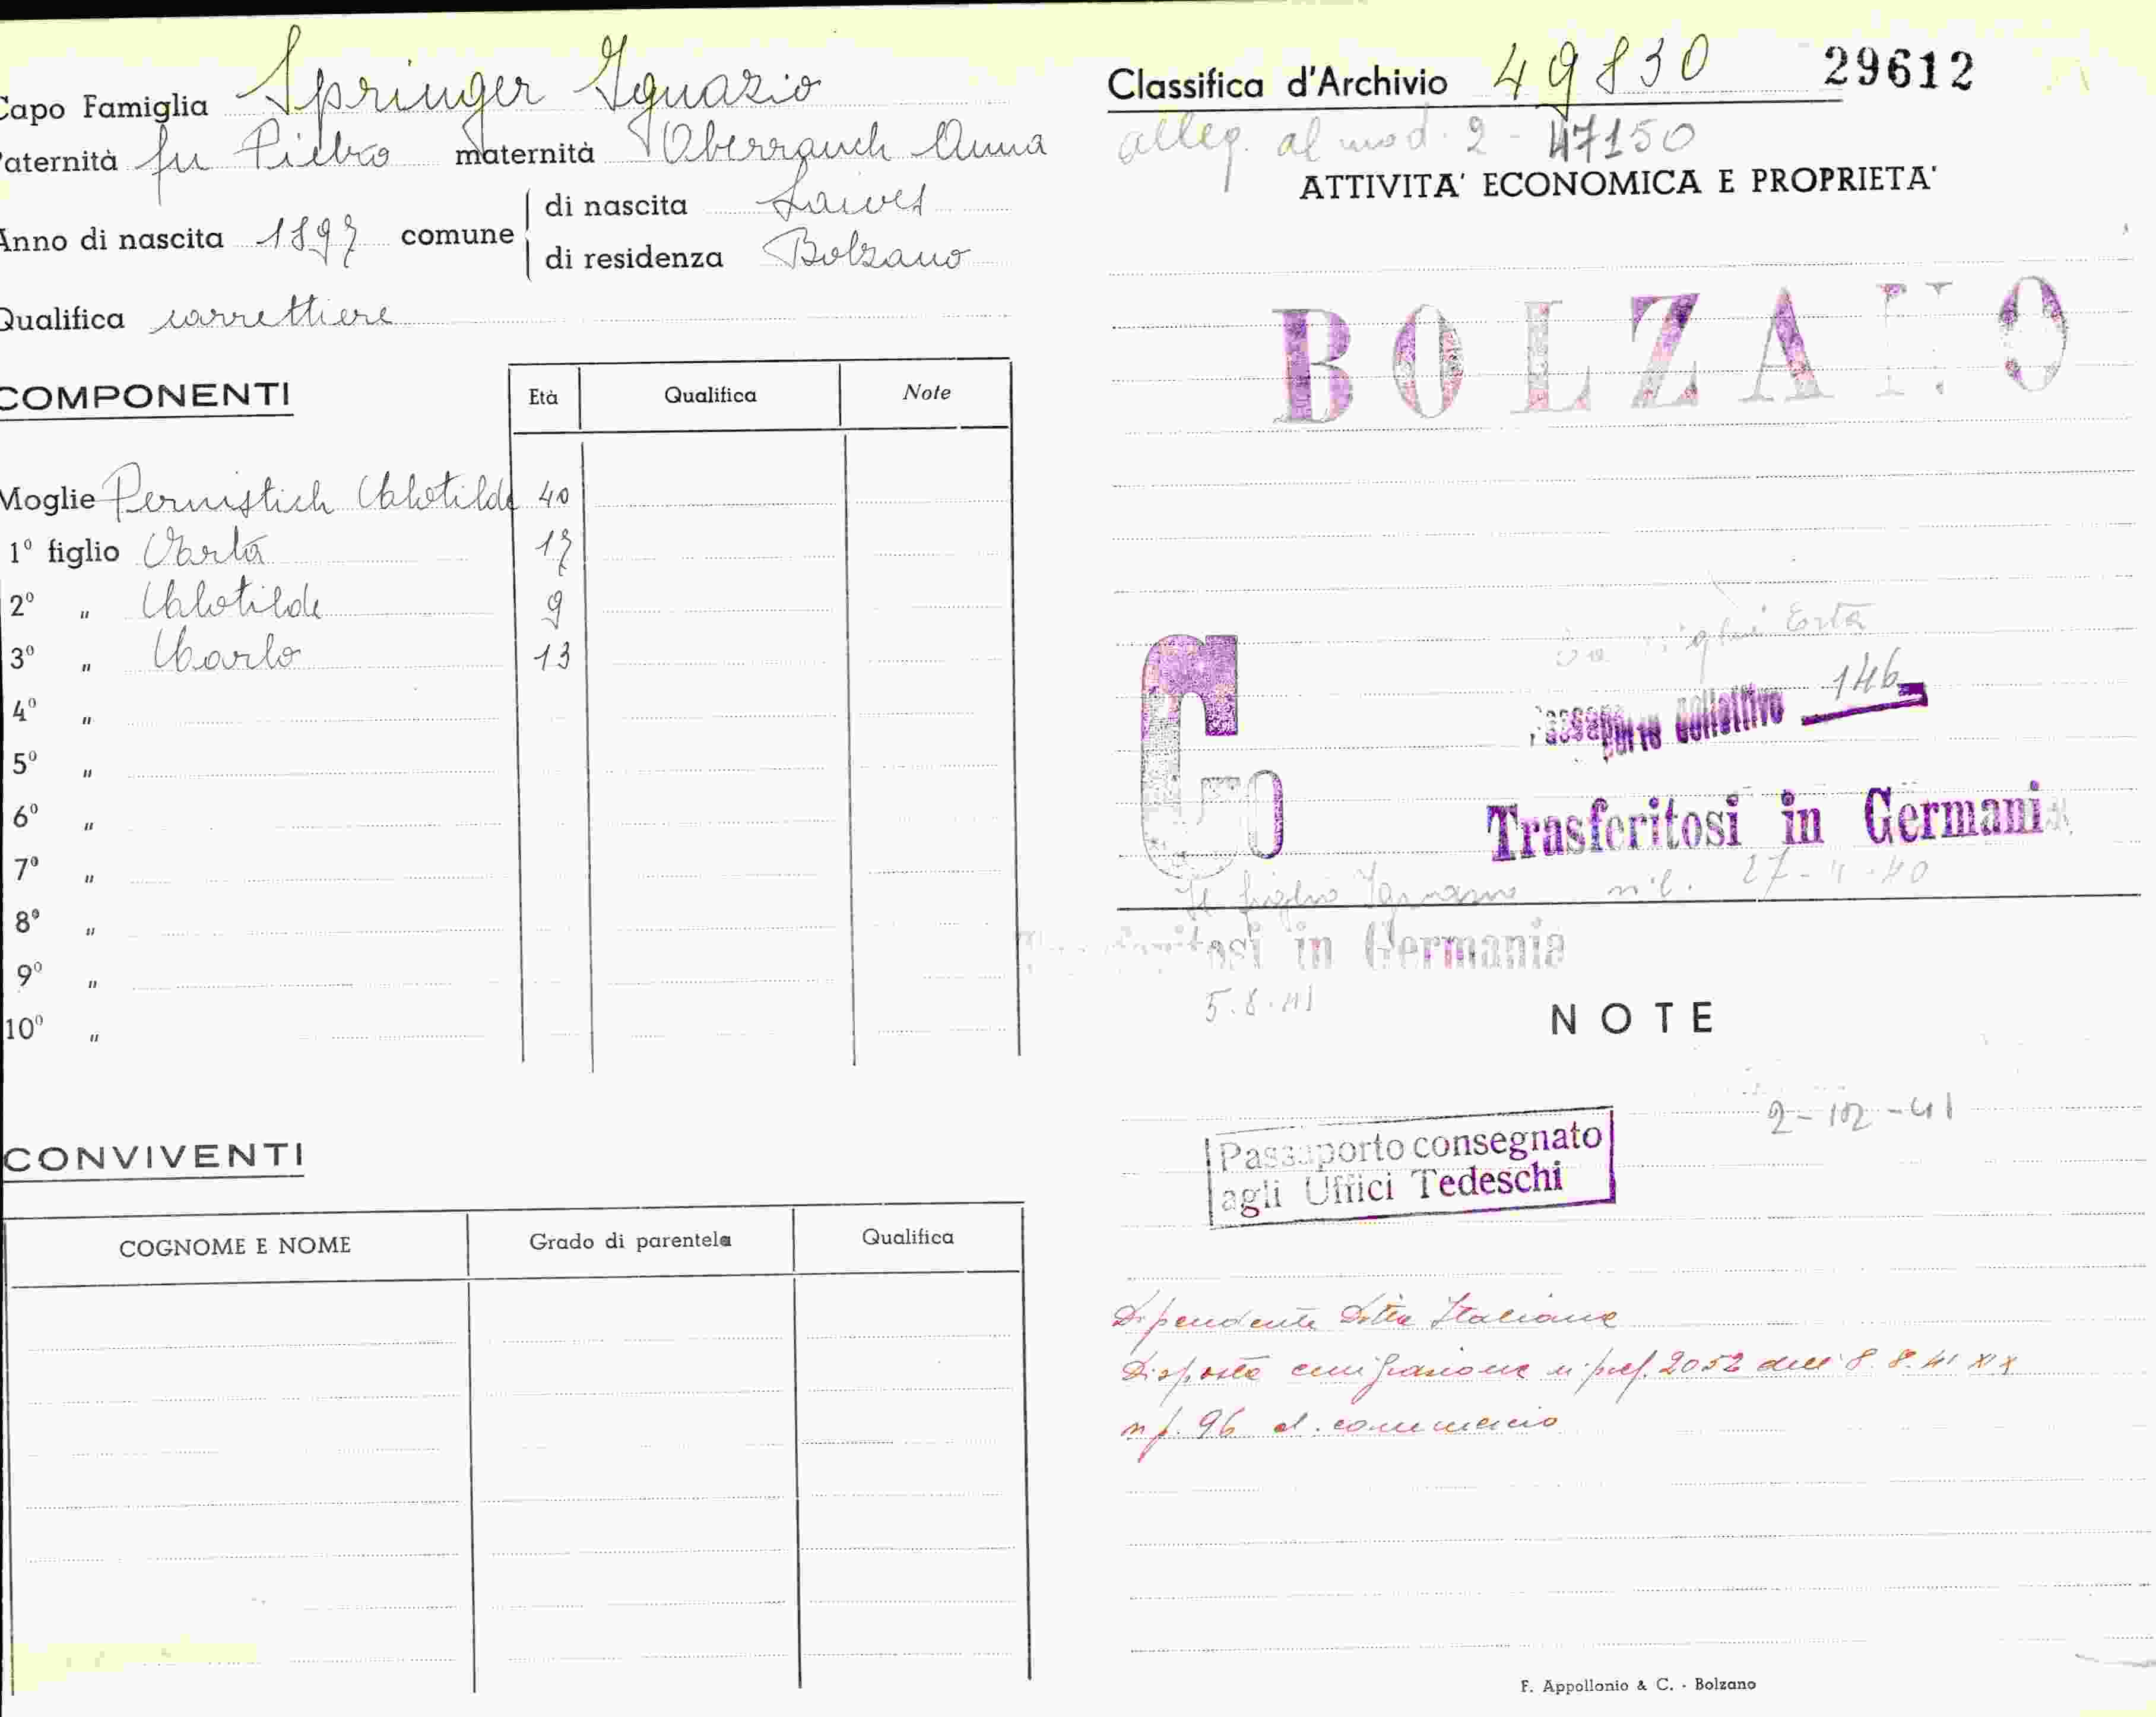 Capo Famiglia Springer Ignazio
Paternità fu Pietro maternità Oberrauch Anna
Anno di nascita 1897 comune di nascita Laives
di residenza Bolzano
Qualifica carrettiere
COMPONENTI
Età Qualifica Note
Moglie Pernstich Clotilde 40
1º figlio 17
2º " Clotilde 9
3º " Carlo 13
4º "
5º "
6º "
7º "
8º "
9º "
10º "
CONVIVENTI
COGNOME E NOME Grado di parentela Qualifica
Classifica d'Archivio 49830 29612
alleg. al mod. 2 - 47150
ATTIVITA' ECONOMICA E PROPRIETA'
BOLZANO
G
Passaporto collettivo 146
Trasferitosi in Germania
Il figlio Ignazio
Trasferitosi in Germania
5.8.41
NOTE
Passaporto consegnato
agli Uffici Tedeschi
Dipendente Ditta Italiana
Disposta emigrazione n. pref. 2052 dell' 8.8.41 XIX
n f. 96 d. commercio
F. Appollonio & C. - Bolzano